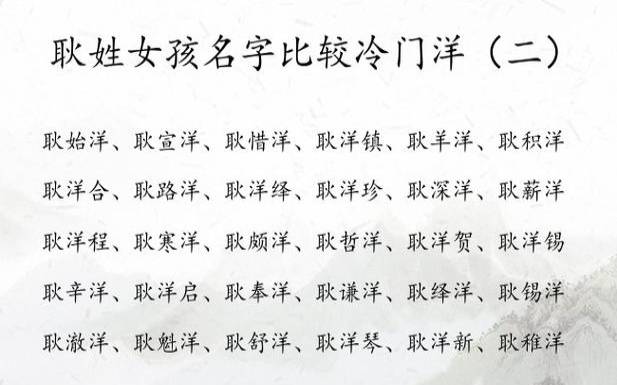 耿姓女孩名字比较冷门洋（二）
耿始洋、耿宣洋、耿惜洋、耿洋镇、耿羊洋、耿积洋
耿洋合、耿路洋、耿洋绎、耿洋珍、耿深洋、耿薪洋
耿洋程、耿寒洋、耿颇洋、耿哲洋、耿洋贺、耿洋锡
耿辛洋、耿洋启、耿奉洋、耿谦洋、耿绎洋、耿锡洋
耿澈洋、耿魁洋、耿舒洋、耿洋琴、耿洋新、耿稚洋